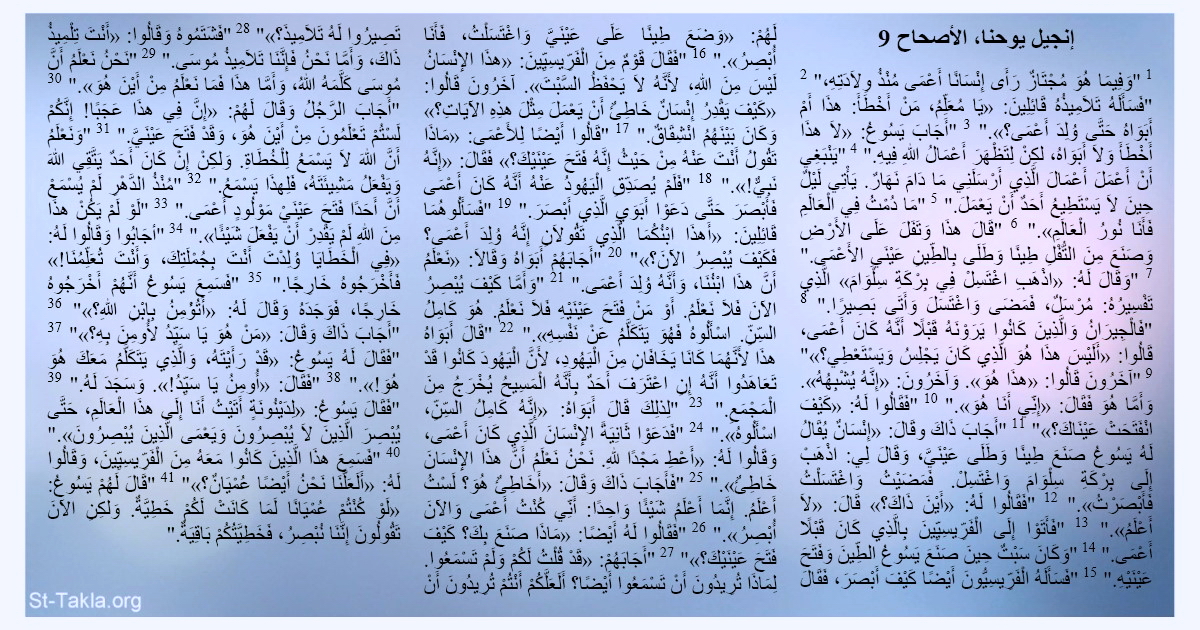 إنجيل يوحنا، الأصحاح 9
1 "وَفِيمَا هُوَ مُجْتَازٌ رَأَى إِنْسَانًا أَعْمَى مُنْذُ وِلاَدَتِهِ،" 2
"فَسَأَلَهُ تَلاَمِيذُهُ قَائِلِينَ: «يَا مُعَلِّمُ، مَنْ أَخْطَأَ: هذَا أَمْ
أَبَوَاهُ حَتَّى وُلِدَ أَعْمَى؟»." 3 "أَجَابَ يَسُوعُ: «لاَ هذَا
أَخْطَأَ وَلاَ أَبَوَاهُ، لكِنْ لِتَظْهَرَ أَعْمَالُ اللهِ فِيهِ." 4 "يَنْبَغِي
أَنْ أَعْمَلَ أَعْمَالَ الَّذِي أَرْسَلَنِي مَا دَامَ نَهَارٌ. يَأْتِي لَيْلٌ
حِينَ لاَ يَسْتَطِيعُ أَحَدٌ أَنْ يَعْمَلَ." 5 "مَا دُمْتُ فِي الْعَالَمِ
فَأَنَا نُورُ الْعَالَمِ»." 6 "قَالَ هذَا وَتَفَلَ عَلَى الأَرْضِ
وَصَنَعَ مِنَ التُّفْلِ طِينًا وَطَلَى بِالطِّينِ عَيْنَيِ الأَعْمَى."
7 "وَقَالَ لَهُ: «اذْهَبِ اغْتَسِلْ فِي بِرْكَةِ سِلْوَامَ» الَّذِي
تَفْسِيرُهُ: مُرْسَلٌ، فَمَضَى وَاغْتَسَلَ وَأَتَى بَصِيرًا." 8
"فَالْجِيرَانُ وَالَّذِينَ كَانُوا يَرَوْنَهُ قَبْلًا أَنَّهُ كَانَ أَعْمَى،
قَالُوا: «أَلَيْسَ هذَا هُوَ الَّذِي كَانَ يَجْلِسُ وَيَسْتَعْطِي؟»"
9 "آخَرُونَ قَالُوا: «هذَا هُوَ». وَآخَرُونَ: «إِنَّهُ يُشْبِهُهُ».
وَأَمَّا هُوَ فَقَالَ: «إِنِّي أَنَا هُوَ»." 10 "فَقَالُوا لَهُ: «كَيْفَ
انْفَتَحَتْ عَيْنَاكَ؟»" 11 "أَجَابَ ذَاكَ وقَالَ: «إِنْسَانٌ يُقَالُ
لَهُ يَسُوعُ صَنَعَ طِينًا وَطَلَى عَيْنَيَّ، وَقَالَ لِي: اذْهَبْ
إِلَى بِرْكَةِ سِلْوَامَ وَاغْتَسِلْ. فَمَضَيْتُ وَاغْتَسَلْتُ
فَأَبْصَرْتُ»." 12 "فَقَالُوا لَهُ: «أَيْنَ ذَاكَ؟» قَالَ: «لاَ
أَعْلَمُ»." 13 "فَأَتَوْا إِلَى الْفَرِّيسِيِّينَ بِالَّذِي كَانَ قَبْلًا
أَعْمَى." 14 "وَكَانَ سَبْتٌ حِينَ صَنَعَ يَسُوعُ الطِّينَ وَفَتَحَ
عَيْنَيْهِ." 15 "فَسَأَلَهُ الْفَرِّيسِيُّونَ أَيْضًا كَيْفَ أَبْصَرَ، فَقَالَ
لَهُمْ: «وَضَعَ طِينًا عَلَى عَيْنَيَّ وَاغْتَسَلْتُ، فَأَنَا
أُبْصِرُ»." 16 "فَقَالَ قَوْمٌ مِنَ الْفَرِّيسِيِّينَ: «هذَا الإِنْسَانُ
لَيْسَ مِنَ اللهِ، لأَنَّهُ لاَ يَحْفَظُ السَّبْتَ». آخَرُونَ قَالُوا:
«كَيْفَ يَقْدِرُ إِنْسَانٌ خَاطِئٌ أَنْ يَعْمَلَ مِثْلَ هذِهِ الآيَاتِ؟»
وَكَانَ بَيْنَهُمُ انْشِقَاقٌ." 17 "قَالُوا أَيْضًا لِلأَعْمَى: «مَاذَا
تَقُولُ أَنْتَ عَنْهُ مِنْ حَيْثُ إِنَّهُ فَتَحَ عَيْنَيْكَ؟» فَقَالَ: «إِنَّهُ
نَبِيٌّ!»." 18 "فَلَمْ يُصَدِّقِ الْيَهُودُ عَنْهُ أَنَّهُ كَانَ أَعْمَى
فَأَبْصَرَ حَتَّى دَعَوْا أَبَوَيِ الَّذِي أَبْصَرَ." 19 "فَسَأَلُوهُمَا
قَائِلِينَ: «أَهذَا ابْنُكُمَا الَّذِي تَقُولاَنِ إِنَّهُ وُلِدَ أَعْمَى؟
فَكَيْفَ يُبْصِرُ الآنَ؟»" 20 "أَجَابَهُمْ أَبَوَاهُ وَقَالاَ: «نَعْلَمُ
أَنَّ هذَا ابْنُنَا، وَأَنَّهُ وُلِدَ أَعْمَى." 21 "وَأَمَّا كَيْفَ يُبْصِرُ
الآنَ فَلاَ نَعْلَمُ. أَوْ مَنْ فَتَحَ عَيْنَيْهِ فَلاَ نَعْلَمُ. هُوَ كَامِلُ
السِّنِّ. اسْأَلُوهُ فَهُوَ يَتَكَلَّمُ عَنْ نَفْسِهِ»." 22 "قَالَ أَبَوَاهُ
هذَا لأَنَّهُمَا كَانَا يَخَافَانِ مِنَ الْيَهُودِ، لأَنَّ الْيَهُودَ كَانُوا قَدْ
تَعَاهَدُوا أَنَّهُ إِنِ اعْتَرَفَ أَحَدٌ بِأَنَّهُ الْمَسِيحُ يُخْرَجُ مِنَ
الْمَجْمَعِ." 23 "لِذلِكَ قَالَ أَبَوَاهُ: «إِنَّهُ كَامِلُ السِّنِّ،
اسْأَلُوهُ»." 24 "فَدَعَوْا ثَانِيَةً الإِنْسَانَ الَّذِي كَانَ أَعْمَى،
وَقَالُوا لَهُ: «أَعْطِ مَجْدًا للهِ. نَحْنُ نَعْلَمُ أَنَّ هذَا الإِنْسَانَ
خَاطِئٌ»." 25 "فَأَجَابَ ذَاكَ وَقَالَ: «أَخَاطِئٌ هُوَ؟ لَسْتُ
أَعْلَمُ. إِنَّمَا أَعْلَمُ شَيْئًا وَاحِدًا: أَنِّي كُنْتُ أَعْمَى وَالآنَ
أُبْصِرُ»." 26 "فَقَالُوا لَهُ أَيْضًا: «مَاذَا صَنَعَ بِكَ؟ كَيْفَ
فَتَحَ عَيْنَيْكَ؟»" 27 "أَجَابَهُمْ: «قَدْ قُلْتُ لَكُمْ وَلَمْ تَسْمَعُوا.
لِمَاذَا تُرِيدُونَ أَنْ تَسْمَعُوا أَيْضًا؟ أَلَعَلَّكُمْ أَنْتُمْ تُرِيدُونَ أَنْ
تَصِيرُوا لَهُ تَلاَمِيذَ؟»" 28 "فَشَتَمُوهُ وَقَالُوا: «أَنْتَ تِلْمِيذُ
ذَاكَ، وَأَمَّا نَحْنُ فَإِنَّنَا تَلاَمِيذُ مُوسَى." 29 "نَحْنُ نَعْلَمُ أَنَّ
مُوسَى كَلَّمَهُ اللهُ، وَأَمَّا هذَا فَمَا نَعْلَمُ مِنْ أَيْنَ هُوَ»." 30
"أَجَابَ الرَّجُلُ وَقَالَ لَهُمْ: «إِنَّ فِي هذَا عَجَبًا! إِنَّكُمْ
لَسْتُمْ تَعْلَمُونَ مِنْ أَيْنَ هُوَ، وَقَدْ فَتَحَ عَيْنَيَّ." 31 "وَنَعْلَمُ
أَنَّ اللهَ لاَ يَسْمَعُ لِلْخُطَاةِ. وَلكِنْ إِنْ كَانَ أَحَدٌ يَتَّقِي اللهَ
وَيَفْعَلُ مَشِيئَتَهُ، فَلِهذَا يَسْمَعُ." 32 "مُنْذُ الدَّهْرِ لَمْ يُسْمَعْ
أَنَّ أَحَدًا فَتَحَ عَيْنَيْ مَوْلُودٍ أَعْمَى." 33 "لَوْ لَمْ يَكُنْ هذَا
مِنَ اللهِ لَمْ يَقْدِرْ أَنْ يَفْعَلَ شَيْئًا»." 34 "أَجَابُوا وَقَالُوا لَهُ:
«فِي الْخَطَايَا وُلِدْتَ أَنْتَ بِجُمْلَتِكَ، وَأَنْتَ تُعَلِّمُنَا!»
فَأَخْرَجُوهُ خَارِجًا." 35 "فَسَمِعَ يَسُوعُ أَنَّهُمْ أَخْرَجُوهُ
خَارِجًا، فَوَجَدَهُ وَقَالَ لَهُ: «أَتُؤْمِنُ بِابْنِ اللهِ؟»" 36
"أَجَابَ ذَاكَ وَقَالَ: «مَنْ هُوَ يَا سَيِّدُ لأُومِنَ بِهِ؟»" 37
"فَقَالَ لَهُ يَسُوعُ: «قَدْ رَأَيْتَهُ، وَالَّذِي يَتَكَلَّمُ مَعَكَ هُوَ
هُوَ!»." 38 "فَقَالَ: «أُومِنُ يَا سَيِّدُ!». وَسَجَدَ لَهُ." 39
"فَقَالَ يَسُوعُ: «لِدَيْنُونَةٍ أَتَيْتُ أَنَا إِلَى هذَا الْعَالَمِ، حَتَّى
يُبْصِرَ الَّذِينَ لاَ يُبْصِرُونَ وَيَعْمَى الَّذِينَ يُبْصِرُونَ»."
40 "فَسَمِعَ هذَا الَّذِينَ كَانُوا مَعَهُ مِنَ الْفَرِّيسِيِّينَ، وَقَالُوا
لَهُ: «أَلَعَلَّنَا نَحْنُ أَيْضًا عُمْيَانٌ؟»" 41 "قَالَ لَهُمْ يَسُوعُ:
«لَوْ كُنْتُمْ عُمْيَانًا لَمَا كَانَتْ لَكُمْ خَطِيَّةٌ. وَلكِنِ الآنَ
تَقُولُونَ إِنَّنَا نُبْصِرُ، فَخَطِيَّتُكُمْ بَاقِيَةٌ."
St-Takla.org